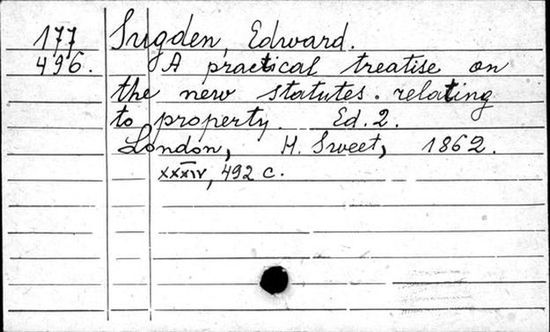 177 Sugden, Edward.
496. A practical treatise on
the new statutes. relating
to property. Ed. 2.
London, H. Sweet, 1862.
XXXIV, 492 c.